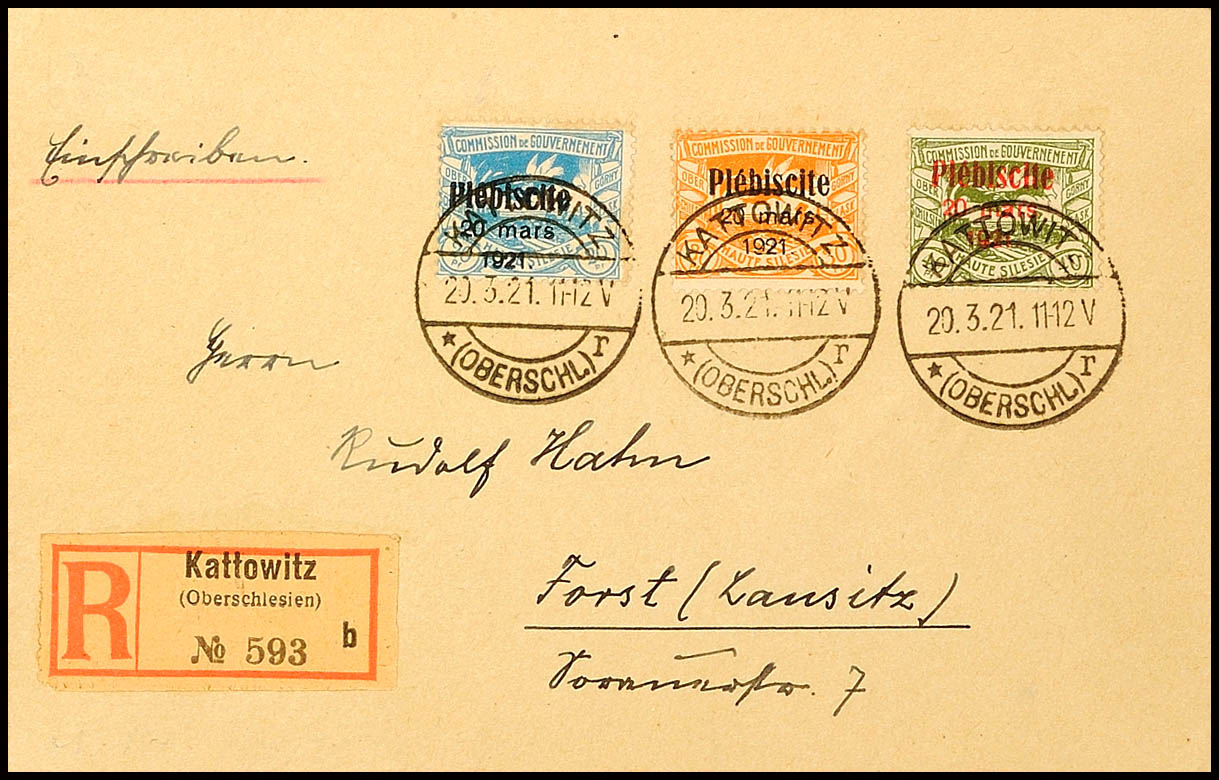 Einschreiben.
COMMISSION DE GOUVERNEMENT
OBER GORNY
Plébiscite
20 mars
1921.
HAUTE SILESIE
KATTOWITZ
20.3.21. 11-12 V
* (OBERSCHL.) r
COMMISSION DE GOUVERNEMENT
OBER GORNY
Plébiscite
20 mars
1921.
HAUTE SILESIE
KATTOWITZ
20.3.21. 11-12 V
* (OBERSCHL.) r
COMMISSION DE GOUVERNEMENT
OBER GORNY
Plébiscite
20 mars
1921.
HAUTE SILESIE
KATTOWITZ
20.3.21. 11-12 V
* (OBERSCHL.) r
Herrn
Rudolf Hahn
Forst (Lausitz)
Sorauerstr. 7
R
Kattowitz
(Oberschlesien)
№ 593 b